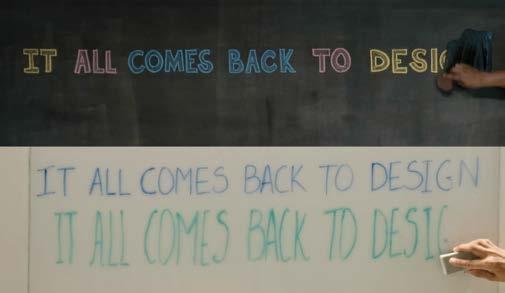 IT ALL COMES BACK TO DESIG
IT ALL COMES BACK TO DESIGN
IT ALL COMES BACK TO DESIG